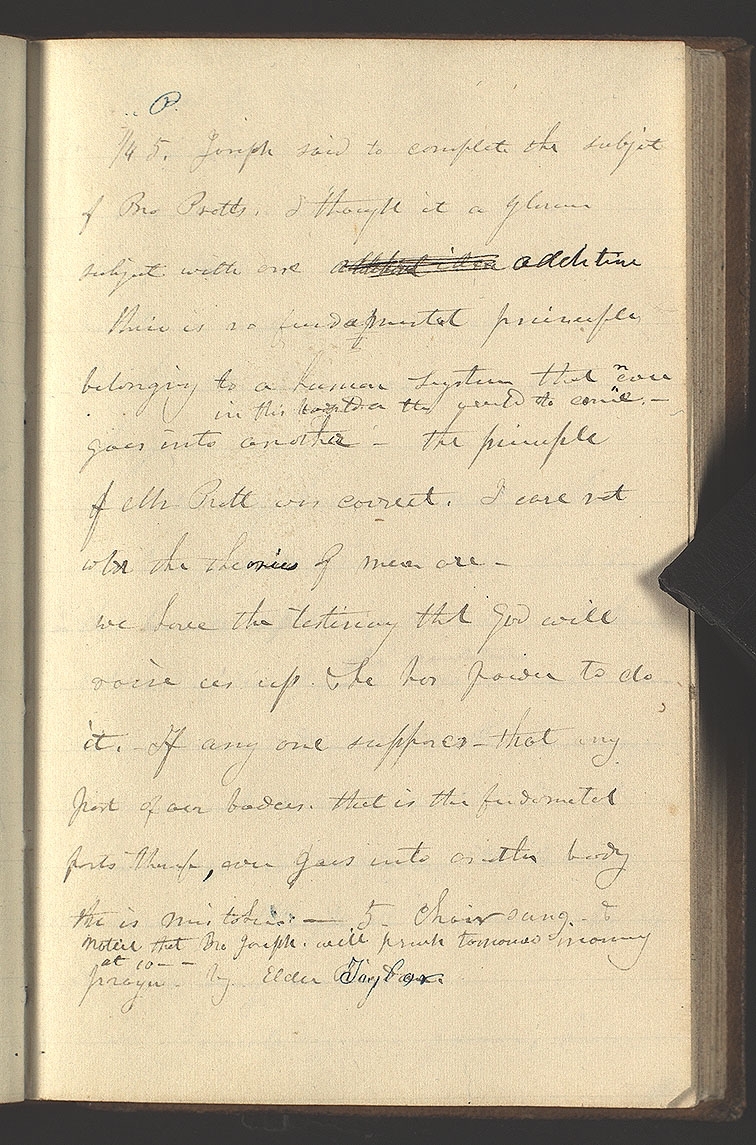 P.
1/4 5. Joseph said to complete the subject
of Bro Pratts. I thought it a glorious
subject with one additional idea addition
their is no fundamental principle
belonging to a human system that ever
in this world or the world to come. —
goes into another — the principle
of Mr Pratt was correct. I care not
what the theories of men are —
we have the testimony that God will
raise us up & he has power to do
it. If any one supposes that any
part of our bodies. that is the fundamental
parts thereof, ever goes into another body
he is mistaken — 5. Choir sung. &
notice that Bro Joseph. will preach tomorrow morning
at 10 —
prayer by Elder Taylor.